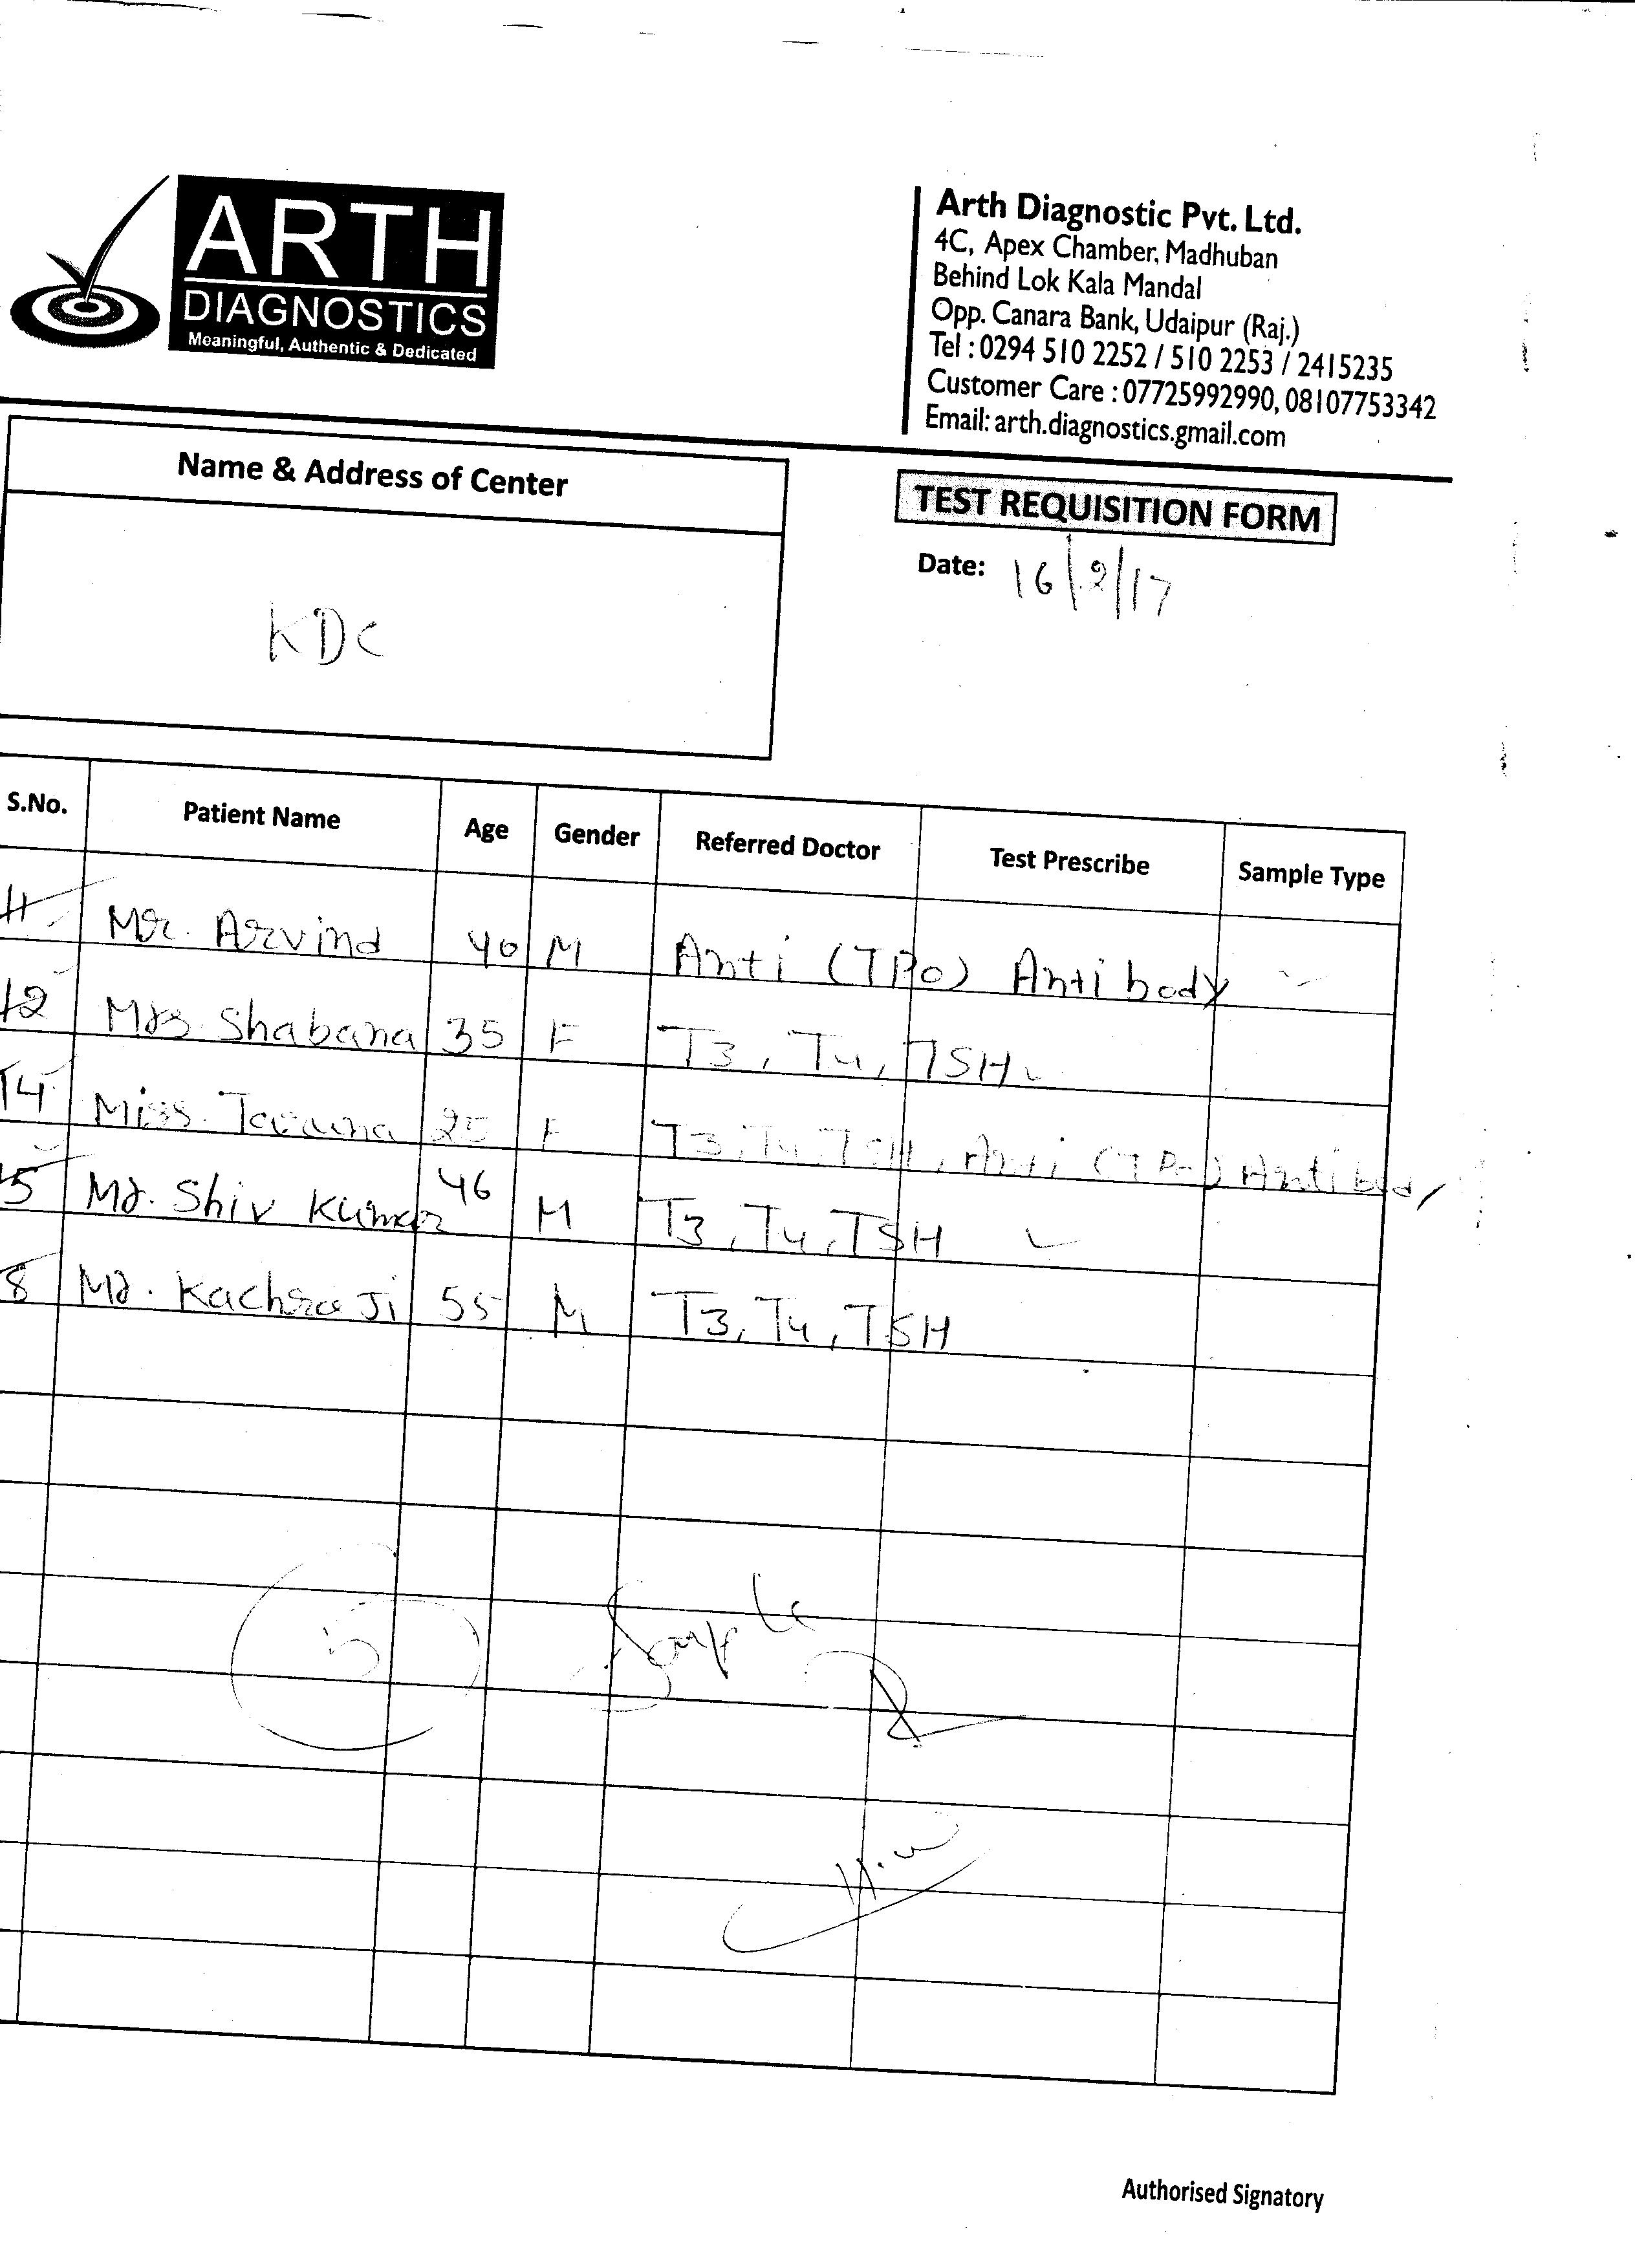 ARTH
DIAGNOSTICS
Meaningful, Authentic & Dedicated
Arth Diagnostic Pvt. Ltd.
4C, Apex Chamber, Madhuban
Behind Lok Kala Mandal
Opp. Canara Bank, Udaipur (Raj.)
Tel : 0294 510 2252 / 510 2253 / 2415235
Customer Care : 07725992990, 08107753342
Email: arth.diagnostics.gmail.com
Name & Address of Center
KDC
TEST REQUISITION FORM
Date: 16/2/17
S.No. Patient Name Age Gender Referred Doctor Test Prescribe Sample Type
Mr. Arvind 40 M Anti (TPO) Antibody
12 Mrs. Shabana 35 F T3, T4, TSH
14 Miss. Taruna 25 F T3, T4, TSH, Anti (TPO) Antibody
5 Mr. Shiv Kumar 46 M T3, T4, TSH
8 Mr. Kachra Ji 55 M T3, T4, TSH
5 Sample
Authorised Signatory